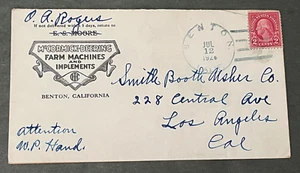 O. A. Rogers
If not delivered within 5 days, return to
E. S. MOORE
McCORMICK-DEERING
FARM MACHINES
AND
IMPLEMENTS
BENTON, CALIFORNIA
BENTON
JUL
12
Smith Booth Usher Co.
228 Central Ave
Los Angeles
Cal
Attention
W. P. Hand.